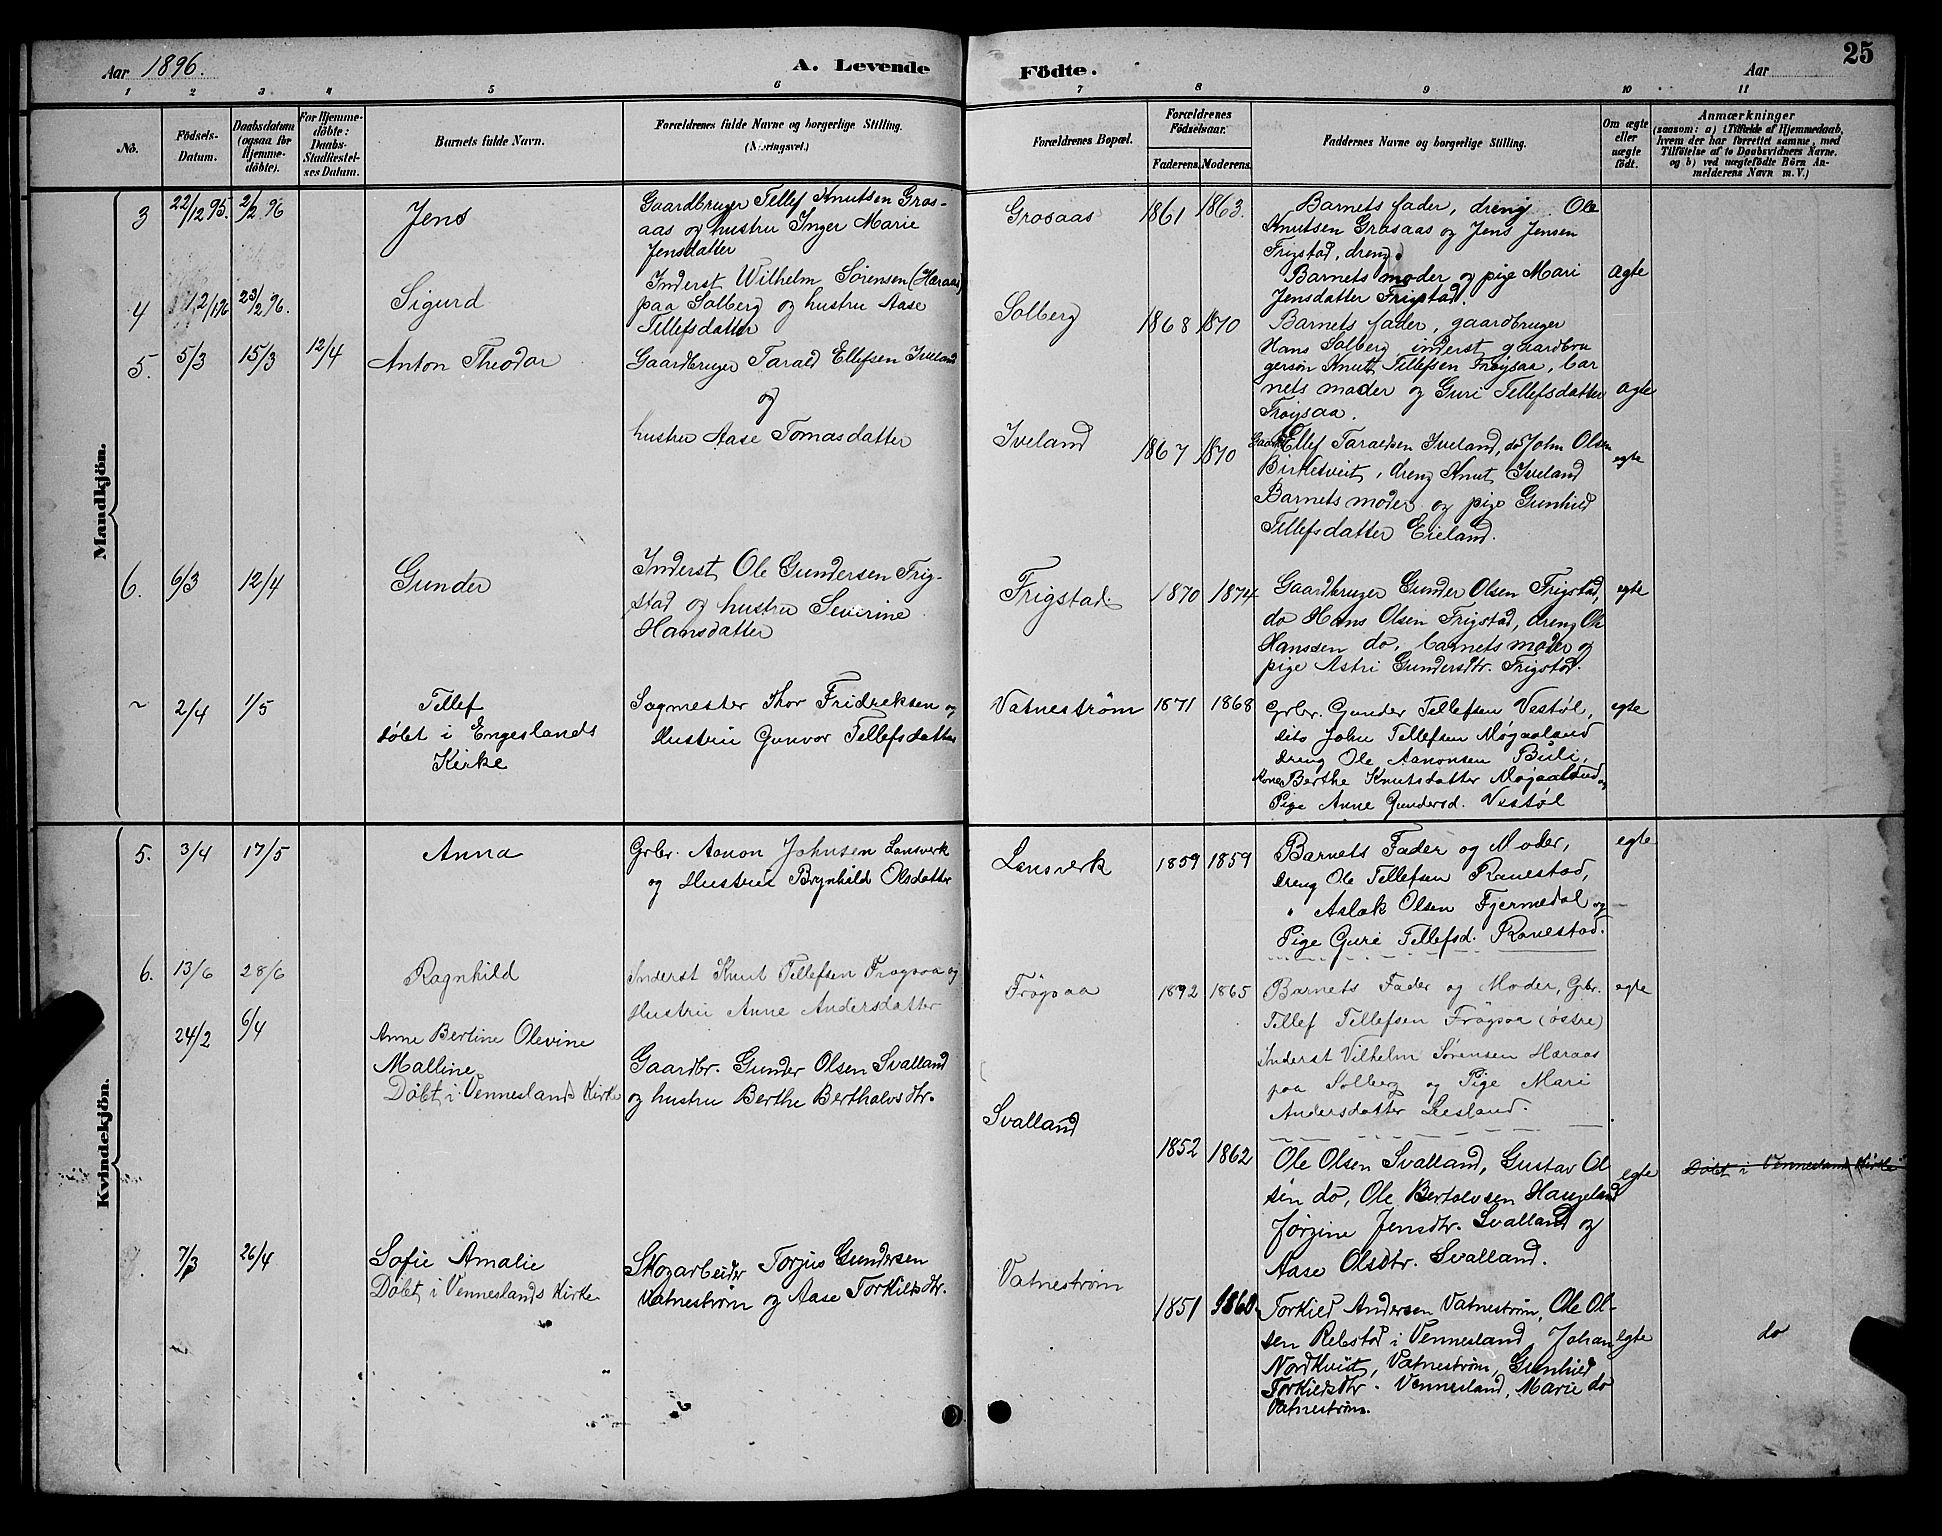 Aar 1896.
A. Levende
Födte.
Aar
25
1 2 3 4 5 6 7 8 9 10 11
No.
Födsels-
Datum.
Daabsdatum
(ogsaa for
Hjemme-
döbte).
For Hjemme-
döbte:
Daabs-
Stadfæstel-
ses Datum.
Barnets fulde Navn.
Forældrenes fulde Navne og borgerlige Stilling.
(Næringsvei.)
Forældrenes Bopæl.
Forældrenes
Födselsaar.
Faderens.
Moderens.
Faddernes Navne og borgerlige Stilling.
Om ægte
eller
uægte
født.
Anmærkninger
(saasom: a) i Tilfælde af Hjemmedaab,
hvem der har forrettet samme, med
Tilföielse af to Daabsvidners Navne.
og b) ved uægtefödte Börn An-
melderens Navn m. V.)
Mandkjön.
3 22/12 95. 2/2 96
Jens
Gaardbruger Tellef Knutsen Gros-
aas og hustru Inger Marie
Jensdatter
Grosaas
1861 1863.
Barnets fader, dreng Ole
Knutsen Grosaas og Jens Jensen
Frigstad, dreng.
Barnets moder og pige Mari
Jensdatter Frigstad.
Ægte
4 12/1 96 23/2 96.
Sigurd
Inderst Wilhelm Sørensen (Hæraas)
paa Solberg og hustru Aase
Tellefsdatter
Solberg
1868 1870
Barnets fader, gaardbruger
Hans Solberg inderst gaardbru
gersøn Knut Tellefsen Frøysaa, bar
nets moder og Guri Tellefsdatter
Frøysaa.
Ægte
5. 5/3 15/3 12/4
Anton Theodor
Gaardbruger Tarald Ellefsen Iveland
og
hustru Aase Tomasdatter
Iveland
1867 1870
Ellef Taraldsen Iveland, do John Olsen
Birketveit, dreng Knut Iveland
Barnets moder og pige Gunhild
Tellefsdatter Eieland.
egte
6. 6/3 12/4
Gunder
Inderst Ole Gundersen Frig-
stad og hustru Severine
Hansdatter
Frigstad.
1870 1874
Gaardbruger Gunder Olsen Frigstad,
do Hans Olsen Frigstad, dreng Ole
Hanssen do, barnets moder og
pige Astri Gundersdtr. Frigstad.
egte
~ 2/4 1/5
Tellef
døbt i Engeslands
Kirke
Sagmester Thor Fridreksen og
Hustru Gunvor Tellefsdatter
Vatnestrøm
1871 1868
Grbr. Gunder Tellefsen Vestøl,
dito John Tellefsen Møgaaland
dreng Ole Aanonsen Buli,
Kone Berthe Knutsdatter Møgaaland og
Pige Anne Gundersd. Vestøl
egte
Kvindekjön.
5. 3/4 17/5
Anna
Grbr. Aanon Johnsen Lansverk
og Hustru Brynhild Olsdatter
Lansverk
1859 1859
Barnets Fader og Moder,
dreng Ole Tellefsen Ranestad,
" Aslak Olsen Fjermedal og
Pige Guri Tellefsd. Ranestad.
egte
6. 13/6 28/6
Ragnhild
Inderst Knut Tellefsen Frøysaa og
Hustru Anne Andersdatter
Frøysaa
1892 1865
Barnets Fader og Moder, Grbr.
Tellef Tellefsen Frøysaa (østre)
Inderst Vilhelm Sørensen Hæraas
paa Solberg og Pige Mari
Andersdatter Liesland.
egte
24/2 6/4
Anne Bertine Olevine
Malline
Døbt i Venneslands Kirke
Gaardbr. Gunder Olsen Svalland
og hustru Berthe Berthalvsdtr.
Svalland
1852 1862
Ole Olsen Svalland, Gustav Ol
sen do, Ole Bertalvsen Haugeland
Jørgine Jensdtr. Svalland og
Aase Olsdtr. Svalland.
egte
Døbt i Vennesland Kirke
7/3 26/4
Sofie Amalie
Døbt i Venneslands Kirke
Skogarbeider Torjus Gundersen
Vatnestrøm og Aase Torkildsdtr.
Vatnestrøm
1851 1860.
Torkild Andersen Vatnestrøm, Ole Ol-
sen Rebstad i Vennesland, Johan
Nordkvist, Vatnestrøm, Gunhild
Torkildsdtr. Vennesland, Marie do
Vatnestrøm.
egte
do